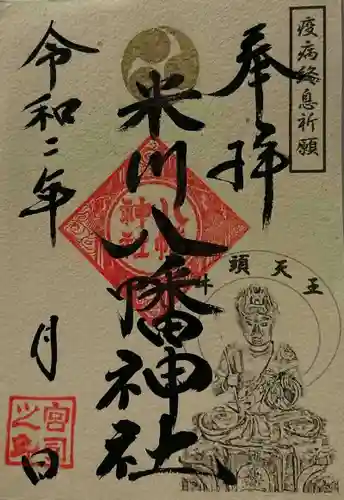 疫病終息祈願
奉拝
米川八幡神社
令和二年　月　日
牛頭天王
八幡神社